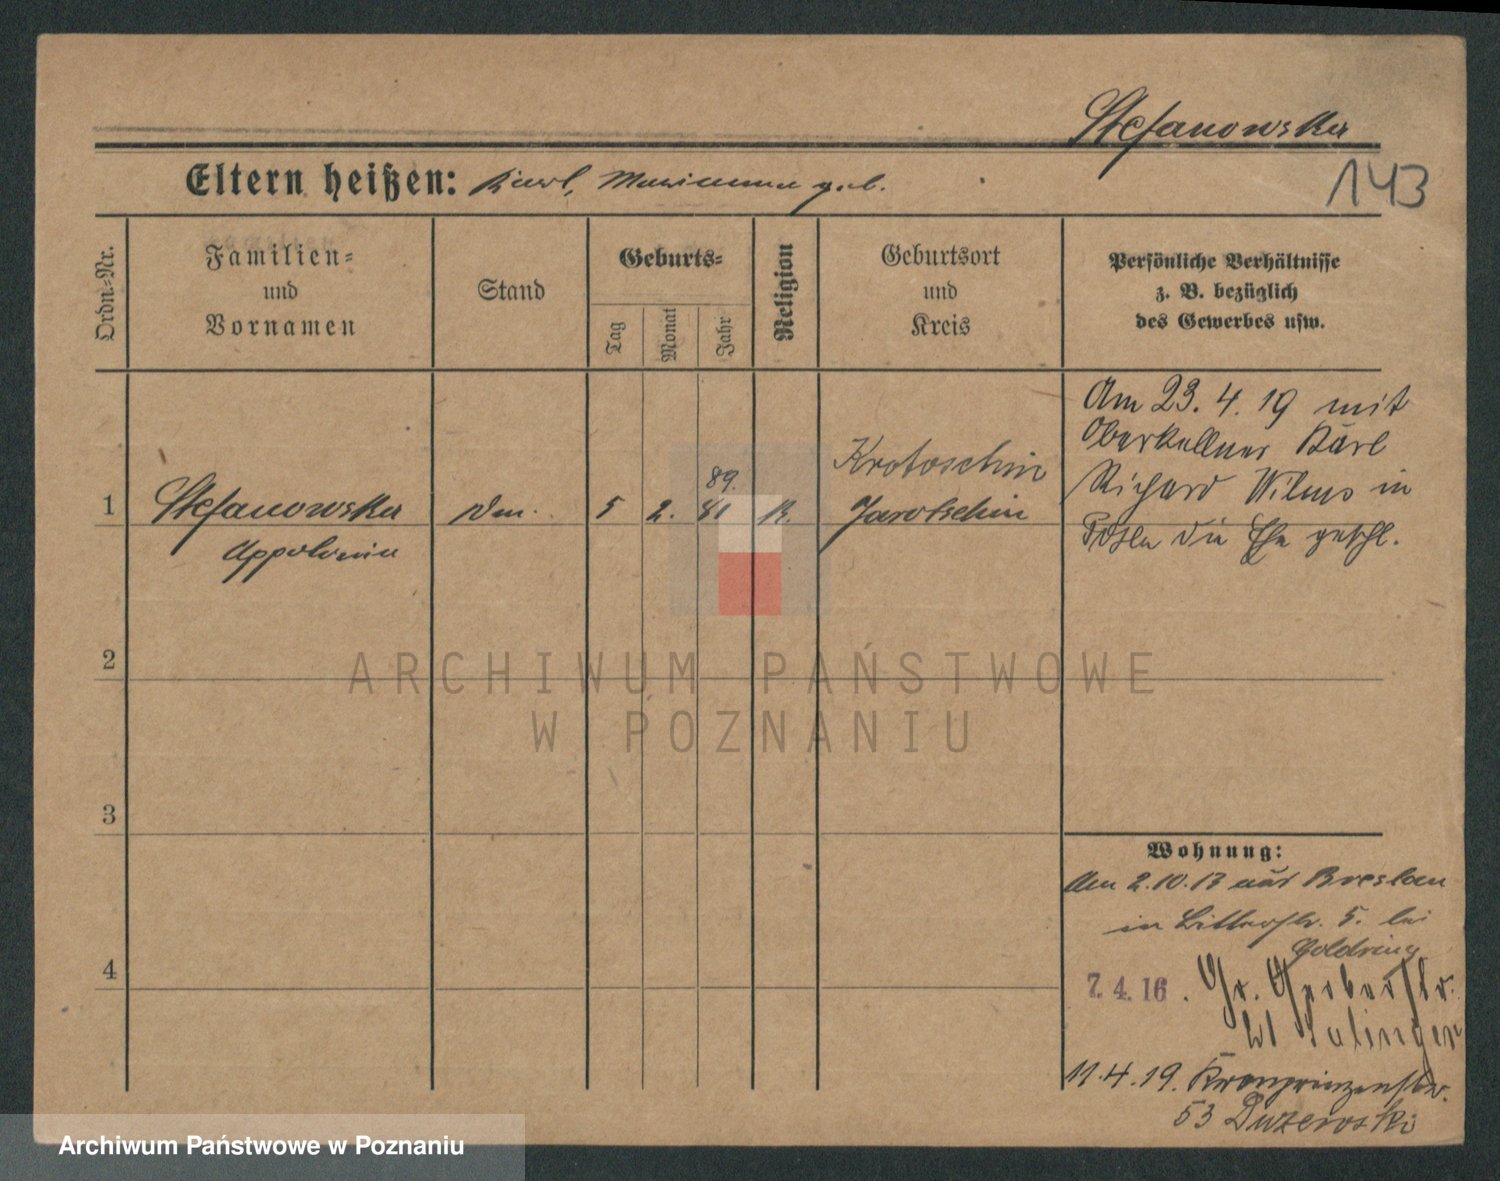 Stefanowska
143
Eltern heißen: Karl, Marianna geb.
Ordn.-Nr.
Familien-
und
Vornamen
Stand
Geburts-
Tag
Monat
Jahr
Religion
Geburtsort
und
Kreis
Persönliche Verhältnisse
z. B. bezüglich
des Gewerbes usw.
1
Stefanowska
Appolonia
5
2.
89.
81
K.
Krotoschin
Jarotschin
Am 23. 4. 19 mit
Oberkellner Karl
Richard Wilms in
Posen die Ehe geschl.
2
3
4
Wohnung:
Am 2.10.13 aus Breslau
in Ritterstr. 5. bei
Goldring
7. 4. 16. Gr. Gerberstr.
Salinger
11.4.19. Kronprinzenstr.
53
ARCHIWUM PAŃSTWOWE
W POZNANIU
Archiwum Państwowe w Poznaniu